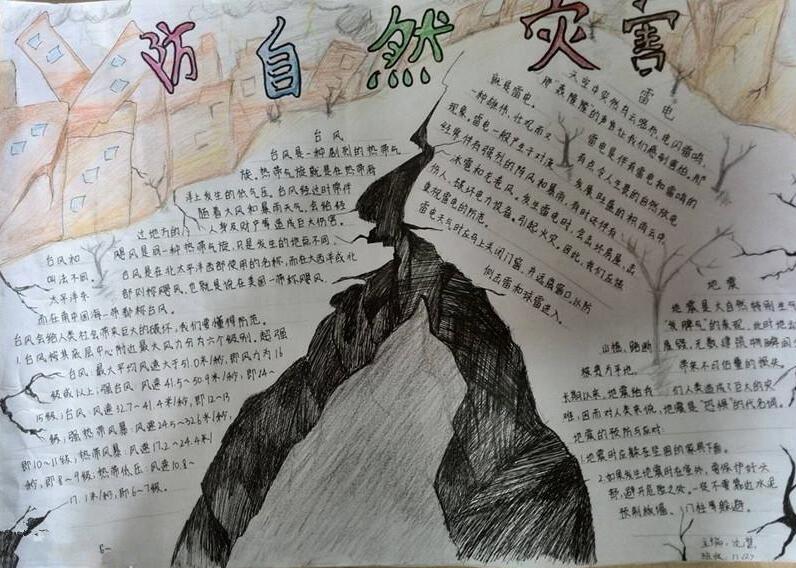 防自然灾害
台风
台风是一种剧烈的热带气
旋,热带气旋就是在热带海
洋上发生的低气压。台风经过时常伴
随着大风和暴雨天气。会给经
过地方的人身及财产等造成巨大伤害。
台风和飓风是同一种热带气旋,只是发生的地点不同,
叫法不同。台风是在北太平洋西部使用的名称,而在大西洋或北
太平洋东部则称飓风。也就是说在美国一带称飓风,
而在南中国海一带都称台风。
台风会给人类社会带来巨大的破坏,我们要懂得防范。
1.台风按其底层中心附近最大风力分为六个级别,超强
台风:最大平均风速大于51.0米/秒,即风力为16
级或以上;强台风:风速41.5~50.9米/秒,即14~
15级;台风:风速32.7~41.4米/秒,即12~13
级;强热带风暴:风速24.5~32.6米/秒,
即10~11级;热带风暴:风速17.2~24.4米/
秒,即8~9级;热带低压:风速10.8~
17.1米/秒,即6~7级。
雷电
天空中突然乌云密布,电闪雷鸣,
那轰隆隆的声音让我们感到害怕。那
就是雷电。雷电是伴有雷电和雷鸣的
一种雄伟、壮观而又有点令人生畏的自然放电
现象。雷电一般产生于对流发展旺盛的积雨云中,
往往伴有强烈的阵风和暴雨,有时还伴有
冰雹和龙卷风。发生雷电时,会击坏房屋、击
伤人、破坏电力设备、引起火灾。因此,我们应该
重视雷电的防范。
雷电天气时应马上关闭门窗,并远离窗口,以防
侧击雷和球雷进入。
地震
地震是大自然特别生气
"发脾气"的表现。此时地
山摇,路断房毁,无数建筑物瞬间
被夷为平地。带来不可估量的损失。
长期以来,地震给我们人类造成了巨大的灾
难,因而对人类来说,地震是"恐惧"的代名词。
地震的预防与应对:
1.地震时应躲在坚固的家具下面。
2.如果发生地震时在室外,要保护好头
部,避开危险之处。一定不要靠近水泥
预制板墙、门柱等躲避。
主编:沈慧